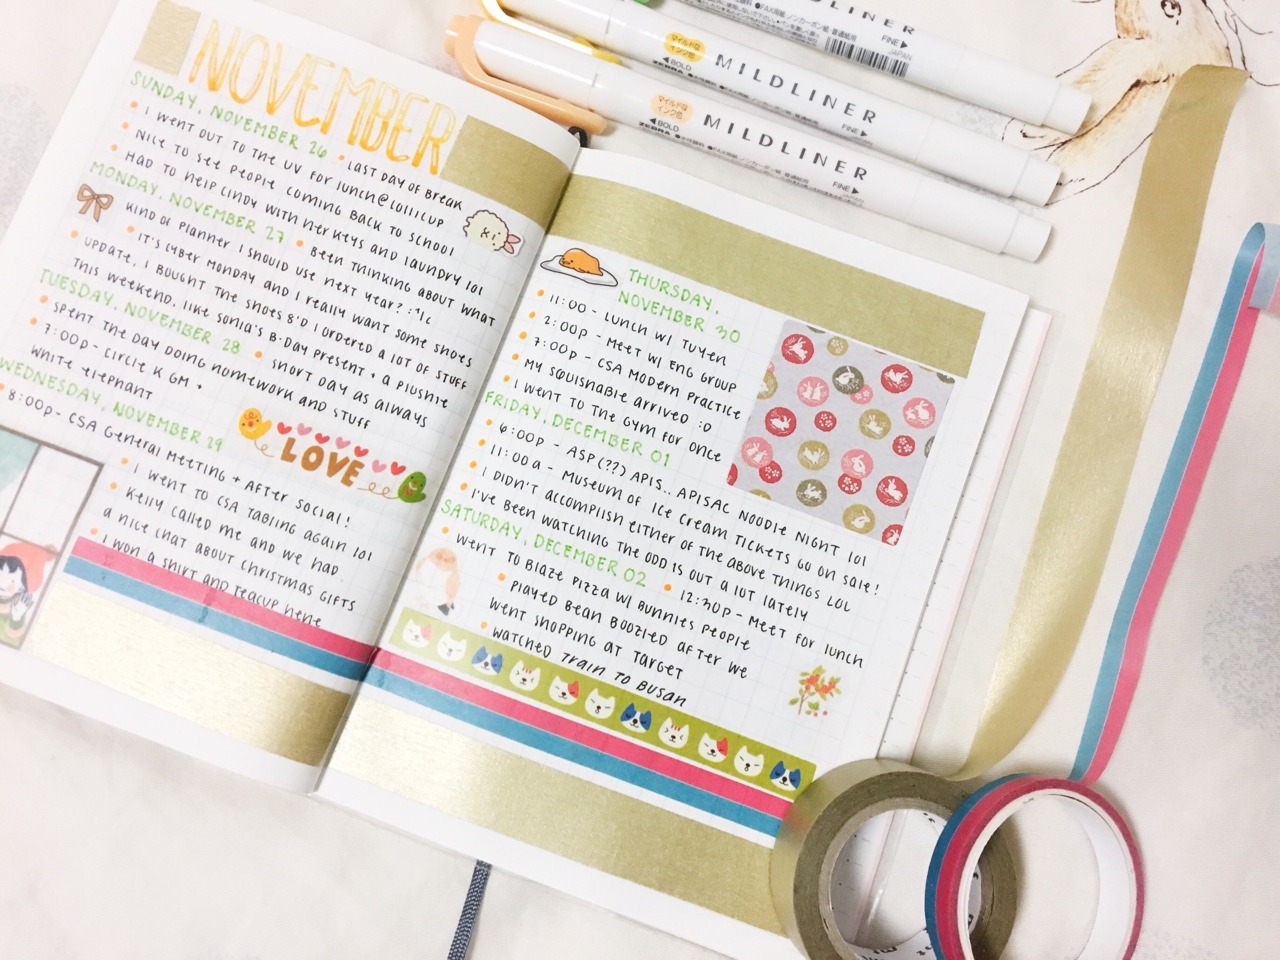 NOVEMBER
SUNDAY, NOVEMBER 26 • LAST DAY OF BREAK
• I WENT OUT TO THE UV FOR LUNCH@LOLLICUP
• NICE TO SEE PEOPLE COMING BACK TO SCHOOL
• HAD TO HELP CINDY WITH HER KEYS AND LAUNDRY LOL
MONDAY, NOVEMBER 27 • BEEN THINKING ABOUT WHAT
KIND OF PLANNER I SHOULD USE NEXT YEAR?
• IT'S CYBER MONDAY AND I REALLY WANT SOME SHOES
• UPDATE, I BOUGHT THE SHOES 8'D I ORDERED A LOT OF STUFF
THIS WEEKEND, LIKE SONIA'S B-DAY PRESENT + A PLUSHIE
TUESDAY, NOVEMBER 28 • SHORT DAY AS ALWAYS
• SPENT THE DAY DOING HOMEWORK AND STUFF
• 7:00P - CIRCLE K GM +
WHITE ELEPHANT
WEDNESDAY, NOVEMBER 29
LOVE
• 8:00P - CSA GENERAL MEETING + AFTER SOCIAL!
• I WENT TO CSA TABLING AGAIN LOL
• KELLY CALLED ME AND WE HAD
A NICE CHAT ABOUT CHRISTMAS GIFTS
• I WON A SHIRT AND TEACUP HEHE
THURSDAY,
NOVEMBER 30
• 11:00 - LUNCH W/ TUYEN
• 2:00P - MEET W/ ENG GROUP
• 7:00P - CSA MODERN PRACTICE
• MY SQUISHABLE ARRIVED :D
• I WENT TO THE GYM FOR ONCE
FRIDAY, DECEMBER 01
• 6:00P - ASP(??) APIS.. APISAC NOODLE NIGHT LOL
• 11:00A - MUSEUM OF ICE CREAM TICKETS GO ON SALE!
• I DIDN'T ACCOMPLISH EITHER OF THE ABOVE THINGS LOL
• I'VE BEEN WATCHING THE ODD IS OUT A LOT LATELY
SATURDAY, DECEMBER 02 • 12:30P - MEET FOR LUNCH
• WENT TO BLAZE PIZZA W/ BUNNIES PEOPLE
• PLAYED BEAN BOOZLED AFTER WE
WENT SHOPPING AT TARGET
• WATCHED TRAIN TO BUSAN
MILDLINER
FINE
JAPAN
マイルドな
インク色
BOLD
ZEBRA
MILDLINER
FINE
マイルドな
インク色
BOLD
ZEBRA
MILDLINER
FINE